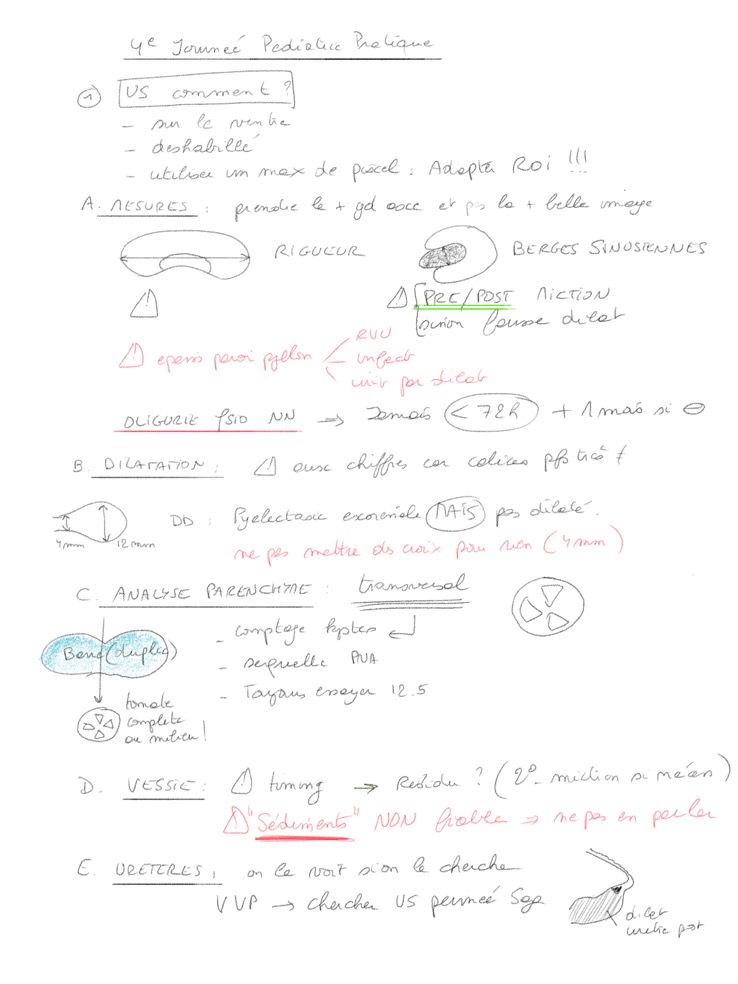 4e Journeé Pediatrie Pratique
1 US comment ?
- sur le ventre
- deshabillé
- utiliser un max de pixel : Adapter ROi !!!
A. MESURES : prendre le + gd axe et pas la + belle image
RIGUEUR
BERGES SINUSIENNES
PRE/POST MICTION
sinon fausse dilat
epaiss paroi pyélon
RVU
infect
unit par dilat
OLIGURIE NN → Jamais < 72h + 1 mois si ⊖
B. DILATATION : aux chiffres car calices pfs très ≠
4mm 12mm
DD : Pyelectasie extrarénale MAIS pas dilaté.
ne pas mettre des croix pour rien (4 mm)
C. ANALYSE PARENCHYME : transversal
Bene (duplex)
- comptage kystes
- sequelle PNA
- Toujours essayer 12.5
tomate
complete
au milieu !
D. VESSIE : timing → Residu ? (2º miction si méan)
"Sédiments" NON fiable → ne pas en parler
E. URETERES, on le voit si on le cherche
VVP → chercher US perineé Sag
dilat
uretre post